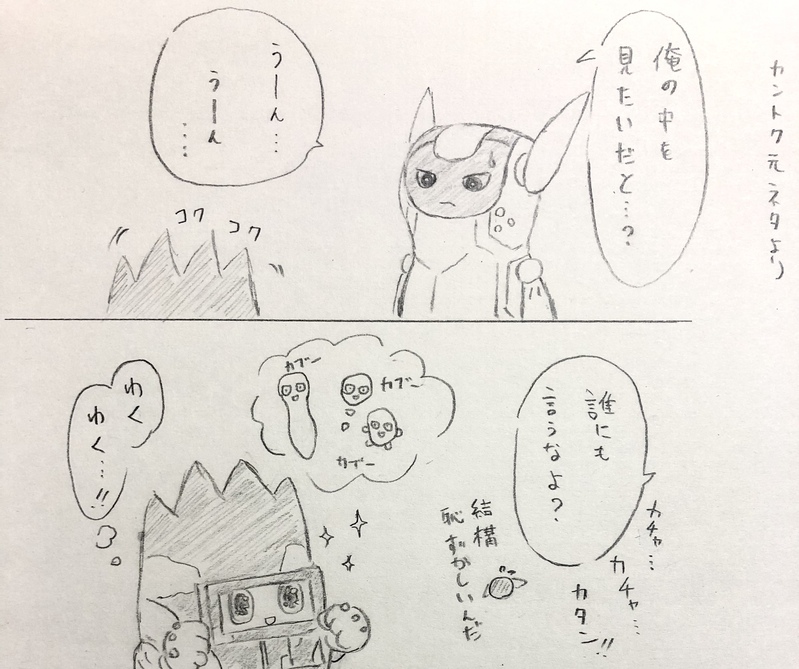 カントク元ネタより
俺の中を
見たいだと…?
うーん…
うーん
……
コク
コク
誰にも
言うなよ?
カチャ…
カチャ…
カタン!!
結構
恥ずかしいんだ
カブー
カブー
カブー
わく
わく…!!